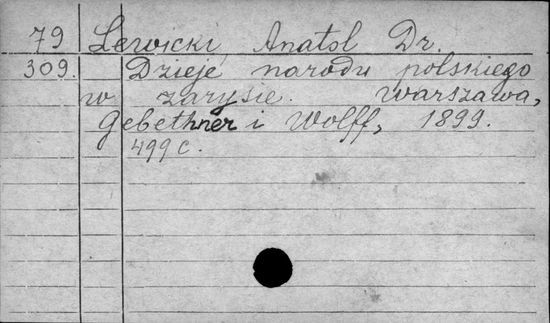 79 Lewicki, Anatol Dr.
309. Dzieje narodu polskiego
w zarysie. Warszawa,
Gebethner i Wolff, 1899.
499 c.